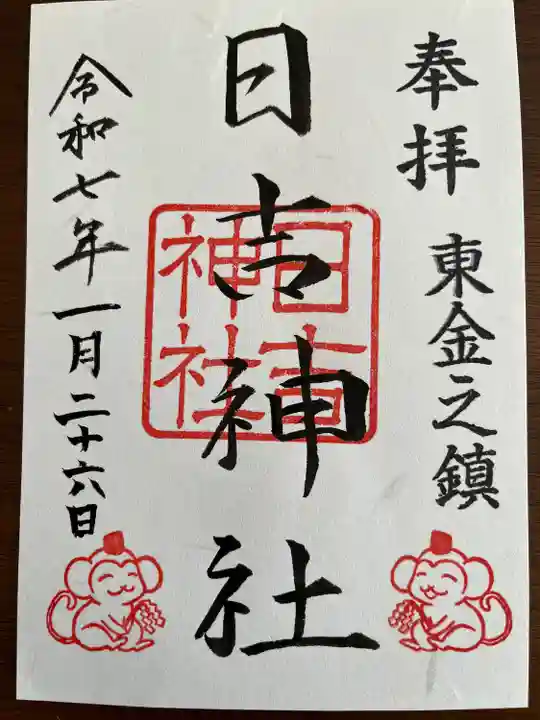 奉拝
東金之鎮
日吉神社
日吉
神社
令和七年一月二十六日